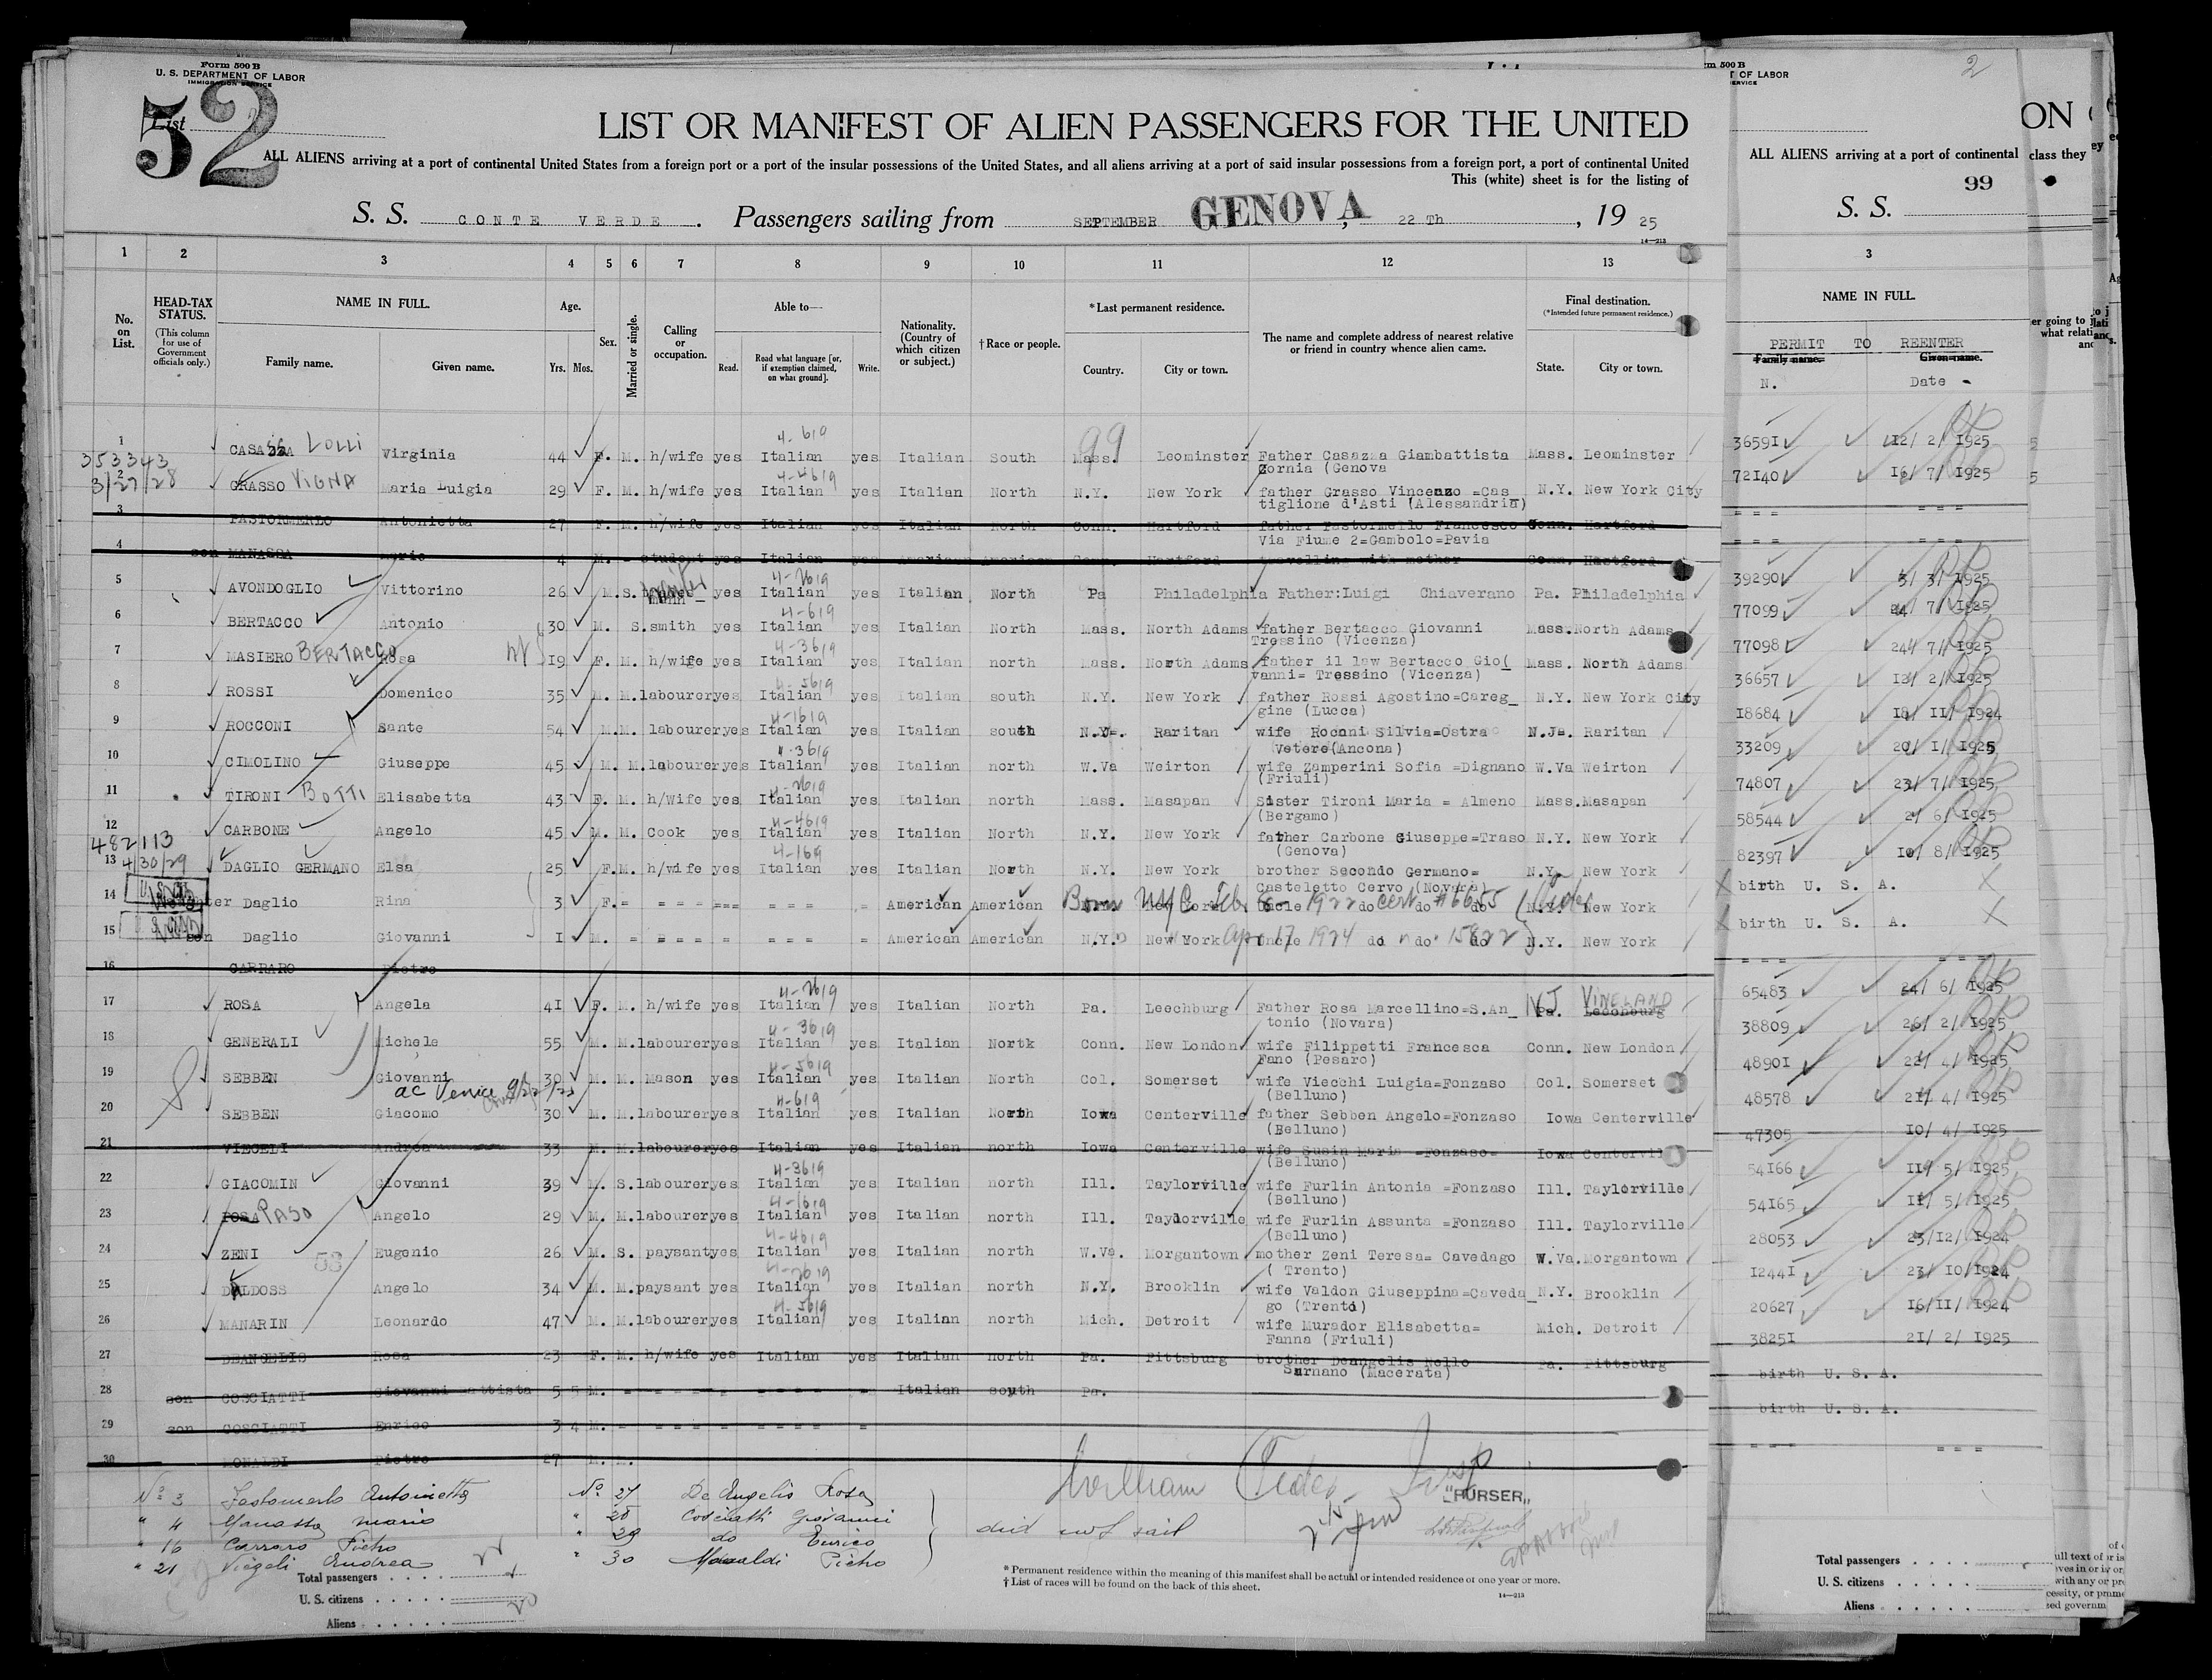 Form 500 B
U. S. DEPARTMENT OF LABOR
IMMIGRATION SERVICE
52
List
LIST OR MANIFEST OF ALIEN PASSENGERS FOR THE UNITED
ALL ALIENS arriving at a port of continental United States from a foreign port or a port of the insular possessions of the United States, and all aliens arriving at a port of said insular possessions from a foreign port, a port of continental United
This (white) sheet is for the listing of
S. S. CONTE VERDE. Passengers sailing from SEPTEMBER GENOVA, 22 Th, 19 25
14-213
1 2 3 4 5 6 7 8 9 10 11 12 13
No. on List.
HEAD-TAX STATUS.
(This column for use of Government officials only.)
NAME IN FULL.
Family name. Given name.
Age.
Yrs. Mos.
Sex.
Married or single.
Calling or occupation.
Able to—
Read. Read what language [or, if exemption claimed, on what ground]. Write.
Nationality. (Country of which citizen or subject.)
†Race or people.
*Last permanent residence.
Country. City or town.
The name and complete address of nearest relative or friend in country whence alien came.
Final destination.
(*Intended future permanent residence.)
State. City or town.
99
1 CASASSA LOLLI Virginia 44 F. M. h/wife yes Italian yes Italian South Mass. Leominster Father Casazza Giambattista Mass. Leominster
353343 4-619
Zornia (Genova
2 GRASSO VIGNA Maria Luigia 29 F. M. h/wife yes Italian yes Italian North N.Y. New York father Grasso Vincenzo =Cas N.Y. New York City
3/27/28 4-4619
tiglione d'Asti (Alessandria)
3 PASTORMERLO Antonietta 27 F. M. h/wife yes Italian yes Italian North Conn. Hartford father Pastormello Francesco Conn. Hartford
Via Fiume 2=Gambolo=Pavia
4 son MANASSA Mario 4 M. - student yes Italian yes American American Conn. Hartford travelling with mother Conn. Hartford
5 AVONDOGLIO Vittorino 26 M. S. yes Italian yes Italian North Pa Philadelphia Father:Luigi Chiaverano Pa. Philadelphia
4-2619
6 BERTACCO Antonio 30 M. S. smith yes Italian yes Italian North Mass. North Adams father Bertacco Giovanni Mass. North Adams
4-619
Tressino (Vicenza)
7 MASIERO BERTACCO Rosa 19 F. M. h/wife yes Italian yes Italian north Mass. North Adams father il law Bertacco Gio( Mass. North Adams
4-3619
vanni= Tressino (Vicenza)
8 ROSSI Domenico 35 M. M. labourer yes Italian yes Italian south N.Y. New York father Rossi Agostino=Careg_ N.Y. New York City
4-5619
gine (Lucca)
9 ROCCONI Sante 54 M. M. labourer yes Italian yes Italian south N.J=. Raritan wife Roconi Silvia=Ostra N.J=. Raritan
4-1619
Vetere(Ancona)
10 CIMOLINO Giuseppe 45 M. M. labourer yes Italian yes Italian north W.Va Weirton wife Zamperini Sofia =Dignano W.Va Weirton
4-3619
(Friuli)
11 TIRONI BOTTI Elisabetta 43 F. M. h/Wife yes Italian yes Italian north Mass. Masapan Sister Tironi Maria = Almeno Mass. Masapan
4-2619
(Bergamo)
12 CARBONE Angelo 45 M. M. Cook yes Italian yes Italian North N.Y. New York father Carbone Giuseppe=Traso N.Y. New York
482113 4-4619
(Genova)
13 DAGLIO GERMANO Elsa 25 F. M. h/wife yes Italian yes Italian North N.Y. New York brother Secondo Germano= N.Y. New York
4/30/29 4-169
Casteletto Cervo (Novara)
14 daughter Daglio Rina 3 F. = = = = = === = = = = American American New York Uncle do do do N.Y. New York
Born NYC Feb 6- 1922 cert #6655
15 son Daglio Giovanni 1 M. = = = = = = = = = American American N.Y. New York Uncle do do do N.Y. New York
Apr 17 1924 15822
16 CARRARO Pietro
17 ROSA Angela 41 F. M. h/wife yes Italian yes Italian North Pa. Leechburg Father Rosa Marcellino=S.An_ Pa. Leechburg
4-2619 NJ VINELAND
tonio (Novara)
18 GENERALI Michele 55 M. M. labourer yes Italian yes Italian North Conn. New London wife Filippetti Francesca Conn. New London
4-3619
Fano (Pesaro)
19 SEBBEN Giovanni 30 M. M. Mason yes Italian yes Italian North Col. Somerset wife Viecchi Luigia=Fonzaso Col. Somerset
4-5619
ac Venice
(Belluno)
20 SEBBEN Giacomo 30 M. M. labourer yes Italian yes Italian North Iowa Centerville father Sebben Angelo=Fonzaso Iowa Centerville
4-619
(Belluno)
21 VIECELI Andrea 33 M. M. labourer yes Italian yes Italian north Iowa Centerville wife Susin Maria =Fonzaso= Iowa Centervil
(Belluno)
22 GIACOMIN Giovanni 39 M. S. labourer yes Italian yes Italian north Ill. Taylorville wife Furlin Antonia =Fonzaso Ill. Taylorville
4-3619
(Belluno)
23 POSA PASO Angelo 29 M. M. labourer yes Italian yes Italian north Ill. Taylorville wife Furlin Assunta =Fonzaso Ill. Taylorville
4-1619
(Belluno)
24 ZENI Eugenio 26 M. S. paysant yes Italian yes Italian north W.Va. Morgantown mother Zeni Teresa= Cavedago W.Va. Morgantown
4-4619
( Trento)
25 DALDOSS Angelo 34 M. M. paysant yes Italian yes Italian north N.Y. Brooklin wife Valdon Giuseppina=Caveda_ N.Y. Brooklin
4-2619
go (Trento)
26 MANARIN Leonardo 47 M. M. labourer yes Italian yes Italian north Mich. Detroit wife Murador Elisabetta= Mich. Detroit
4-5619
Fanna (Friuli)
27 DEANGELIS Rosa 23 F. M. h/wife yes Italian yes Italian north Pa. Pittsburg brother Deangelis Nello Pa. Pittsburg
Sarnano (Macerata)
28 son COSCIATTI Giovanni attista 5 5 M. - - - - - - - - - - Italian south Pa.
29 son COSCIATTI Enrico 3 4 M. - = = = = = = = = =
30 MONALDI Pietro 27 M. M.
No 3 Pastomerlo Antonietta No 27 De Angelis Rosa
" 4 Manassa Mario " 28 Cosciatti Giovanni
" 16 Carraro Pietro " 29 do Enrico
" 21 Viegeli Andrea " 30 Monaldi Pietro
did not sail
"PURSER"
Total passengers
U. S. citizens
Aliens
* Permanent residence within the meaning of this manifest shall be actual or intended residence of one year or more.
† List of races will be found on the back of this sheet.
14-213
rm 500 B
T OF LABOR
ERVICE
2
ON
ALL ALIENS arriving at a port of continental
class they
99
S. S.
3
NAME IN FULL.
PERMIT TO REENTER
Family name. Given name.
N. Date
36591 12/ 2/ 1925
72140 16/ 7/ 1925
= = = = = =
= = = = = =
39290 3/ 3/ 1925
77099 24/ 7/ 1925
77098 24/ 7/ 1925
36657 12/ 2/ 1925
18684 18/ 11/ 1924
33209 20/ 1/ 1925
74807 23/ 7/ 1925
58544 2/ 6/ 1925
82397 10/ 8/ 1925
birth U. S. A.
birth U. S. A.
= = = = = =
65483 24/ 6/ 1925
38809 26/ 2/ 1925
48901 22/ 4/ 1925
48578 21/ 4/ 1925
47305 10/ 4/ 1925
54166 11/ 5/ 1925
54165 11/ 5/ 1925
28053 23/12/ 1924
12441 23/ 10/1924
20627 16/11/ 1924
38251 21/ 2/ 1925
birth U. S. A.
birth U. S. A.
= = = = = =
Total passengers
U. S. citizens
Aliens